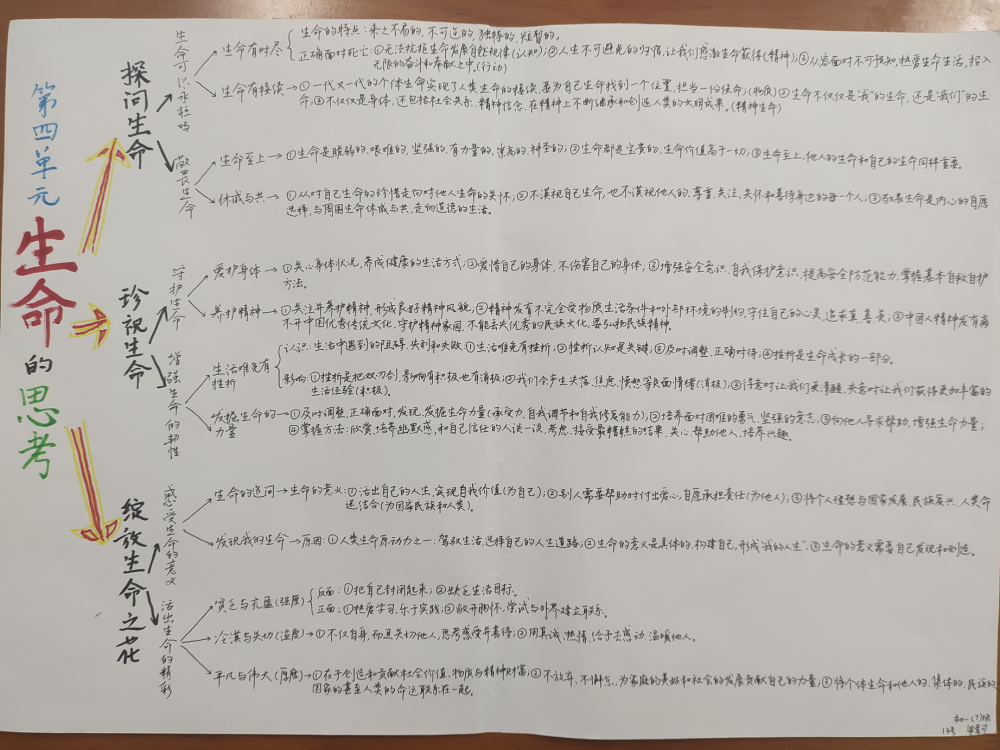 第四单元
生命
的
思考
探问生命
生命可以永恒吗
生命有时尽
生命的特点:来之不易的,不可逆的,独特的,短暂的。
正确面对死亡:①无法抗拒生命发展自然规律(认知);②人生不可避免的归宿,让我们感激生命获得(精神);③从容面对不可预知,热爱生命生活,投入
无限的奋斗和奉献之中。(行动)
生命有接续
①一代又一代的个体生命实现了人类生命的接续,要为自己生命找到一个位置,担当一份使命;(物质)②生命不仅仅是"我"的生命,还是"我们"的生
命;③不仅仅是身体,还包括社会关系,精神信念,在精神上不断继承和创造人类的文明成果。(精神生命)
敬畏生命
生命至上
①生命是脆弱的、艰难的,坚强的、有力量的,崇高的、神圣的;②生命都是宝贵的,生命价值高于一切;③生命至上,他人的生命和自己的生命同样重要。
休戚与共
①从对自己生命的珍惜走向对他人生命的关怀;②不漠视自己生命,也不漠视他人的,尊重、关注、关怀和善待身边的每一个人;③敬畏生命是内心的自愿
选择,与周围生命休戚与共,走向道德的生活。
珍视生命
守护生命
爱护身体
①关心身体状况,养成健康的生活方式;②爱惜自己的身体,不伤害自己的身体;③增强安全意识、自我保护意识,提高安全防范能力,掌握基本自救自护
方法。
养护精神
①关注并养护精神,形成良好精神风貌;②精神发育不完全受物质生活条件和外部环境的制约,守住自己的心灵,追求真、善、美;③中国人精神发育离
不开中国优秀传统文化,守护精神家园,不能丢失优秀的民族文化,要弘扬民族精神。
增强生命的韧性
生活难免有
挫折
认识:生活中遇到的阻碍、失利和失败:①生活难免有挫折;②挫折认知是关键;③及时调整,正确对待;④挫折是生命成长的一部分。
影响:①挫折是把双刃剑,影响有积极也有消极;②我们会产生失落、焦虑、愤怒等负面情绪(消极);③得意时让我们更清醒,失意时让我们获得更加丰富的
生活经验(积极)。
发掘生命的
力量
①及时调整,正确面对,发现、发掘生命力量(承受力、自我调节和自我修复能力);②培养面对困难的勇气,坚强的意志;③向他人寻求帮助,增强生命力量;
④掌握方法:欣赏、培养幽默感,和自己信任的人谈一谈,考虑、接受最糟糕的结果,关心、帮助他人,培养兴趣。
绽放生命之花
感受生命的意义
生命的追问
生命的意义:①活出自己的人生,实现自我价值(为自己);②别人需要帮助时付出爱心,自愿承担责任(为他人);③将个人理想与国家发展、民族复兴、人类命
运结合(为国家民族和人类)。
发现我的生命
原因:①人类生命原动力之一:驾驭生活,选择自己的人生道路;②生命的意义是具体的,构建自己,形成"我的人生";③生命的意义需要自己发现和创造。
活出生命的精彩
贫乏与充盈(强度)
反面:①把自己封闭起来;②缺乏生活目标。
正面:①热爱学习,乐于实践;②敞开胸怀,尝试与外界建立联系。
冷漠与关切(温度)
①不仅自身,而且关切他人,思考感受并善待;②用真诚、热情、给予去感动、温暖他人。
平凡与伟大(厚度)
①在于创造和贡献社会价值、物质与精神财富;②不放弃、不懈怠,为家庭的美好和社会的发展贡献自己的力量;③将个体生命和他人的、集体的、民族的、
国家的甚至人类的命运联系在一起。
初一(7)班
13号